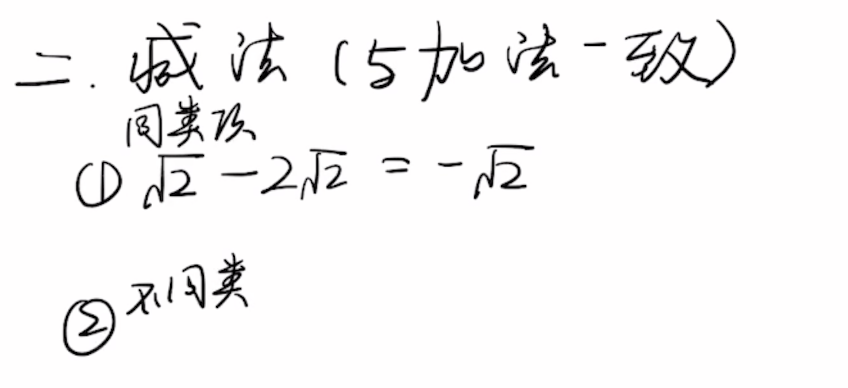 二. 减法(与加法一致)
同类项
① √2 - 2√2 = -√2
② 不同类